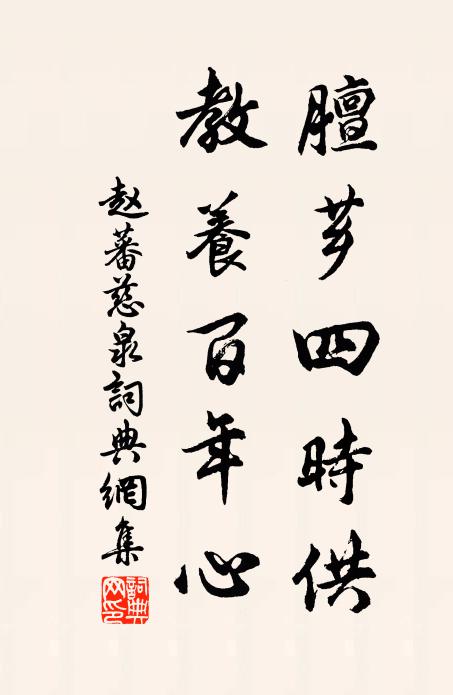 膻芗四時供
教養百年心
赵蕃慈泉詞典網集
詞典网印